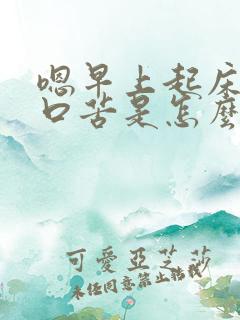 嗯早上起床
口苦是怎麼
可愛亞芝莎
未经同意禁止转载